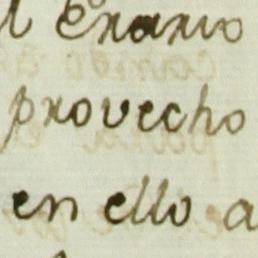 l Erario
provecho
en ello a